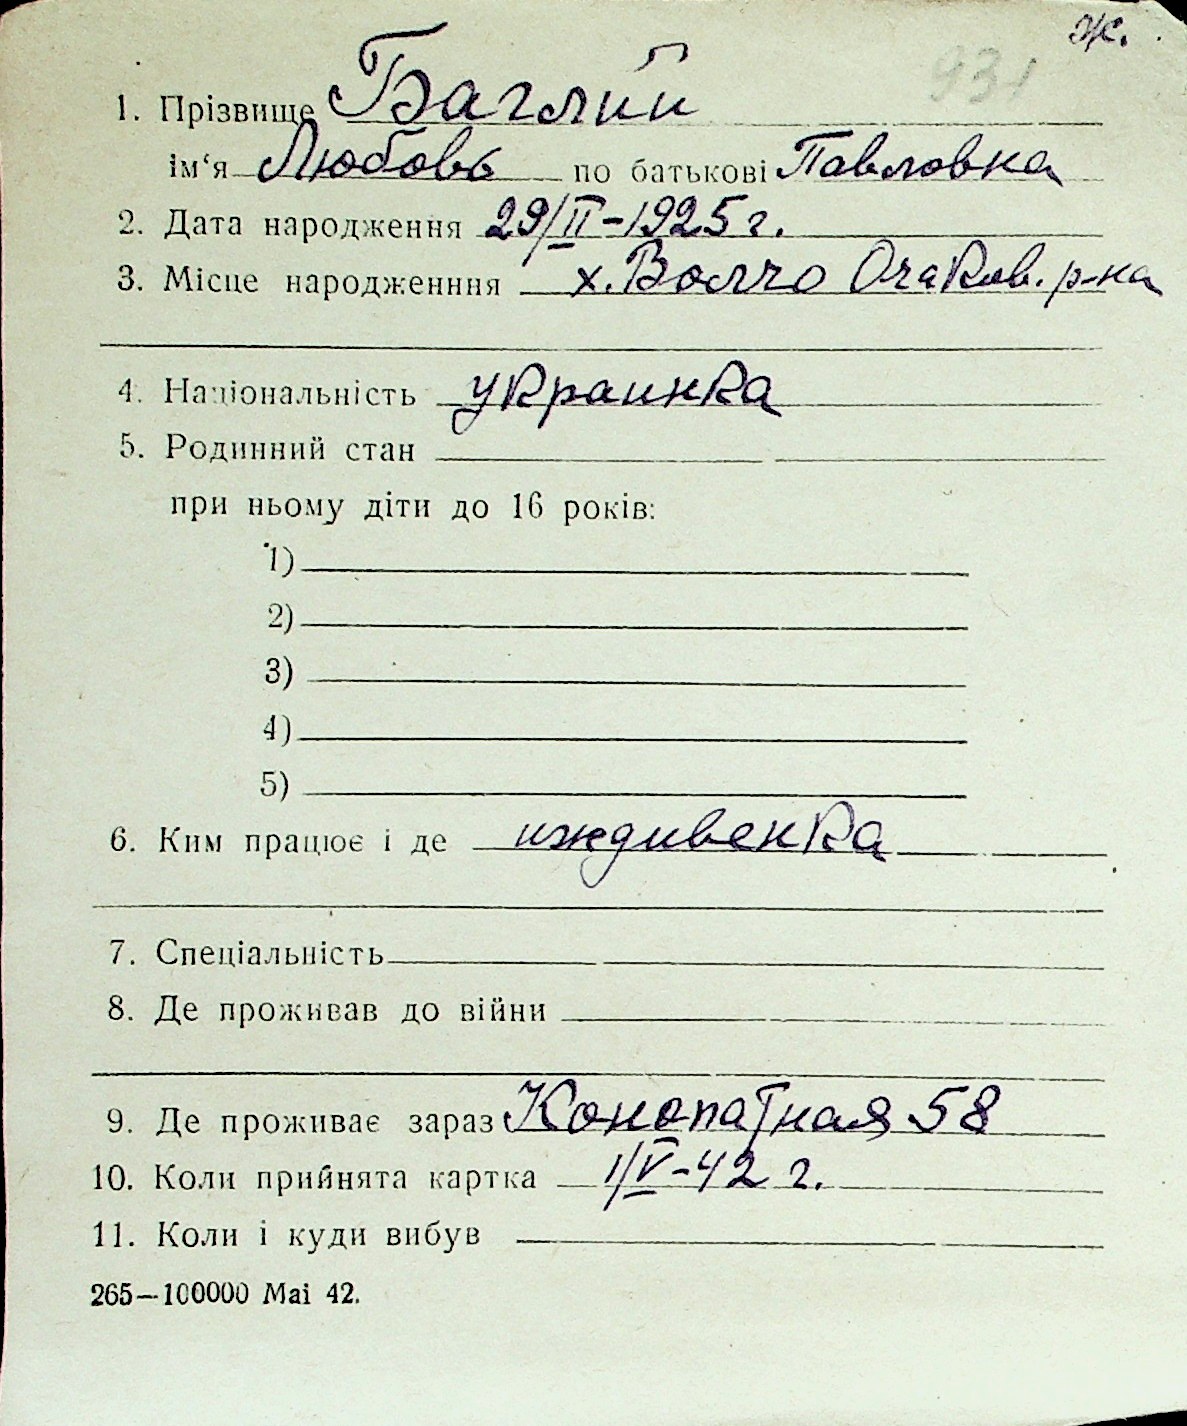 ж.
931
1. Прізвище Баглий
ім‘я Любовь по батькові Павловна
2. Дата народження 29/II-1925 г.
3. Місце народженння х. Волчо Очаков. р-на
4. Національність украинка
5. Родинний стан
при ньому діти до 16 років:
1)
2)
3)
4)
5)
6. Ким працює і де иждивенка
7. Спеціальність
8. Де проживав до війни
9. Де проживає зараз Конопатная 58
10. Коли прийнята картка 1/V-42 г.
11. Коли і куди вибув
265—100000 Mai 42.